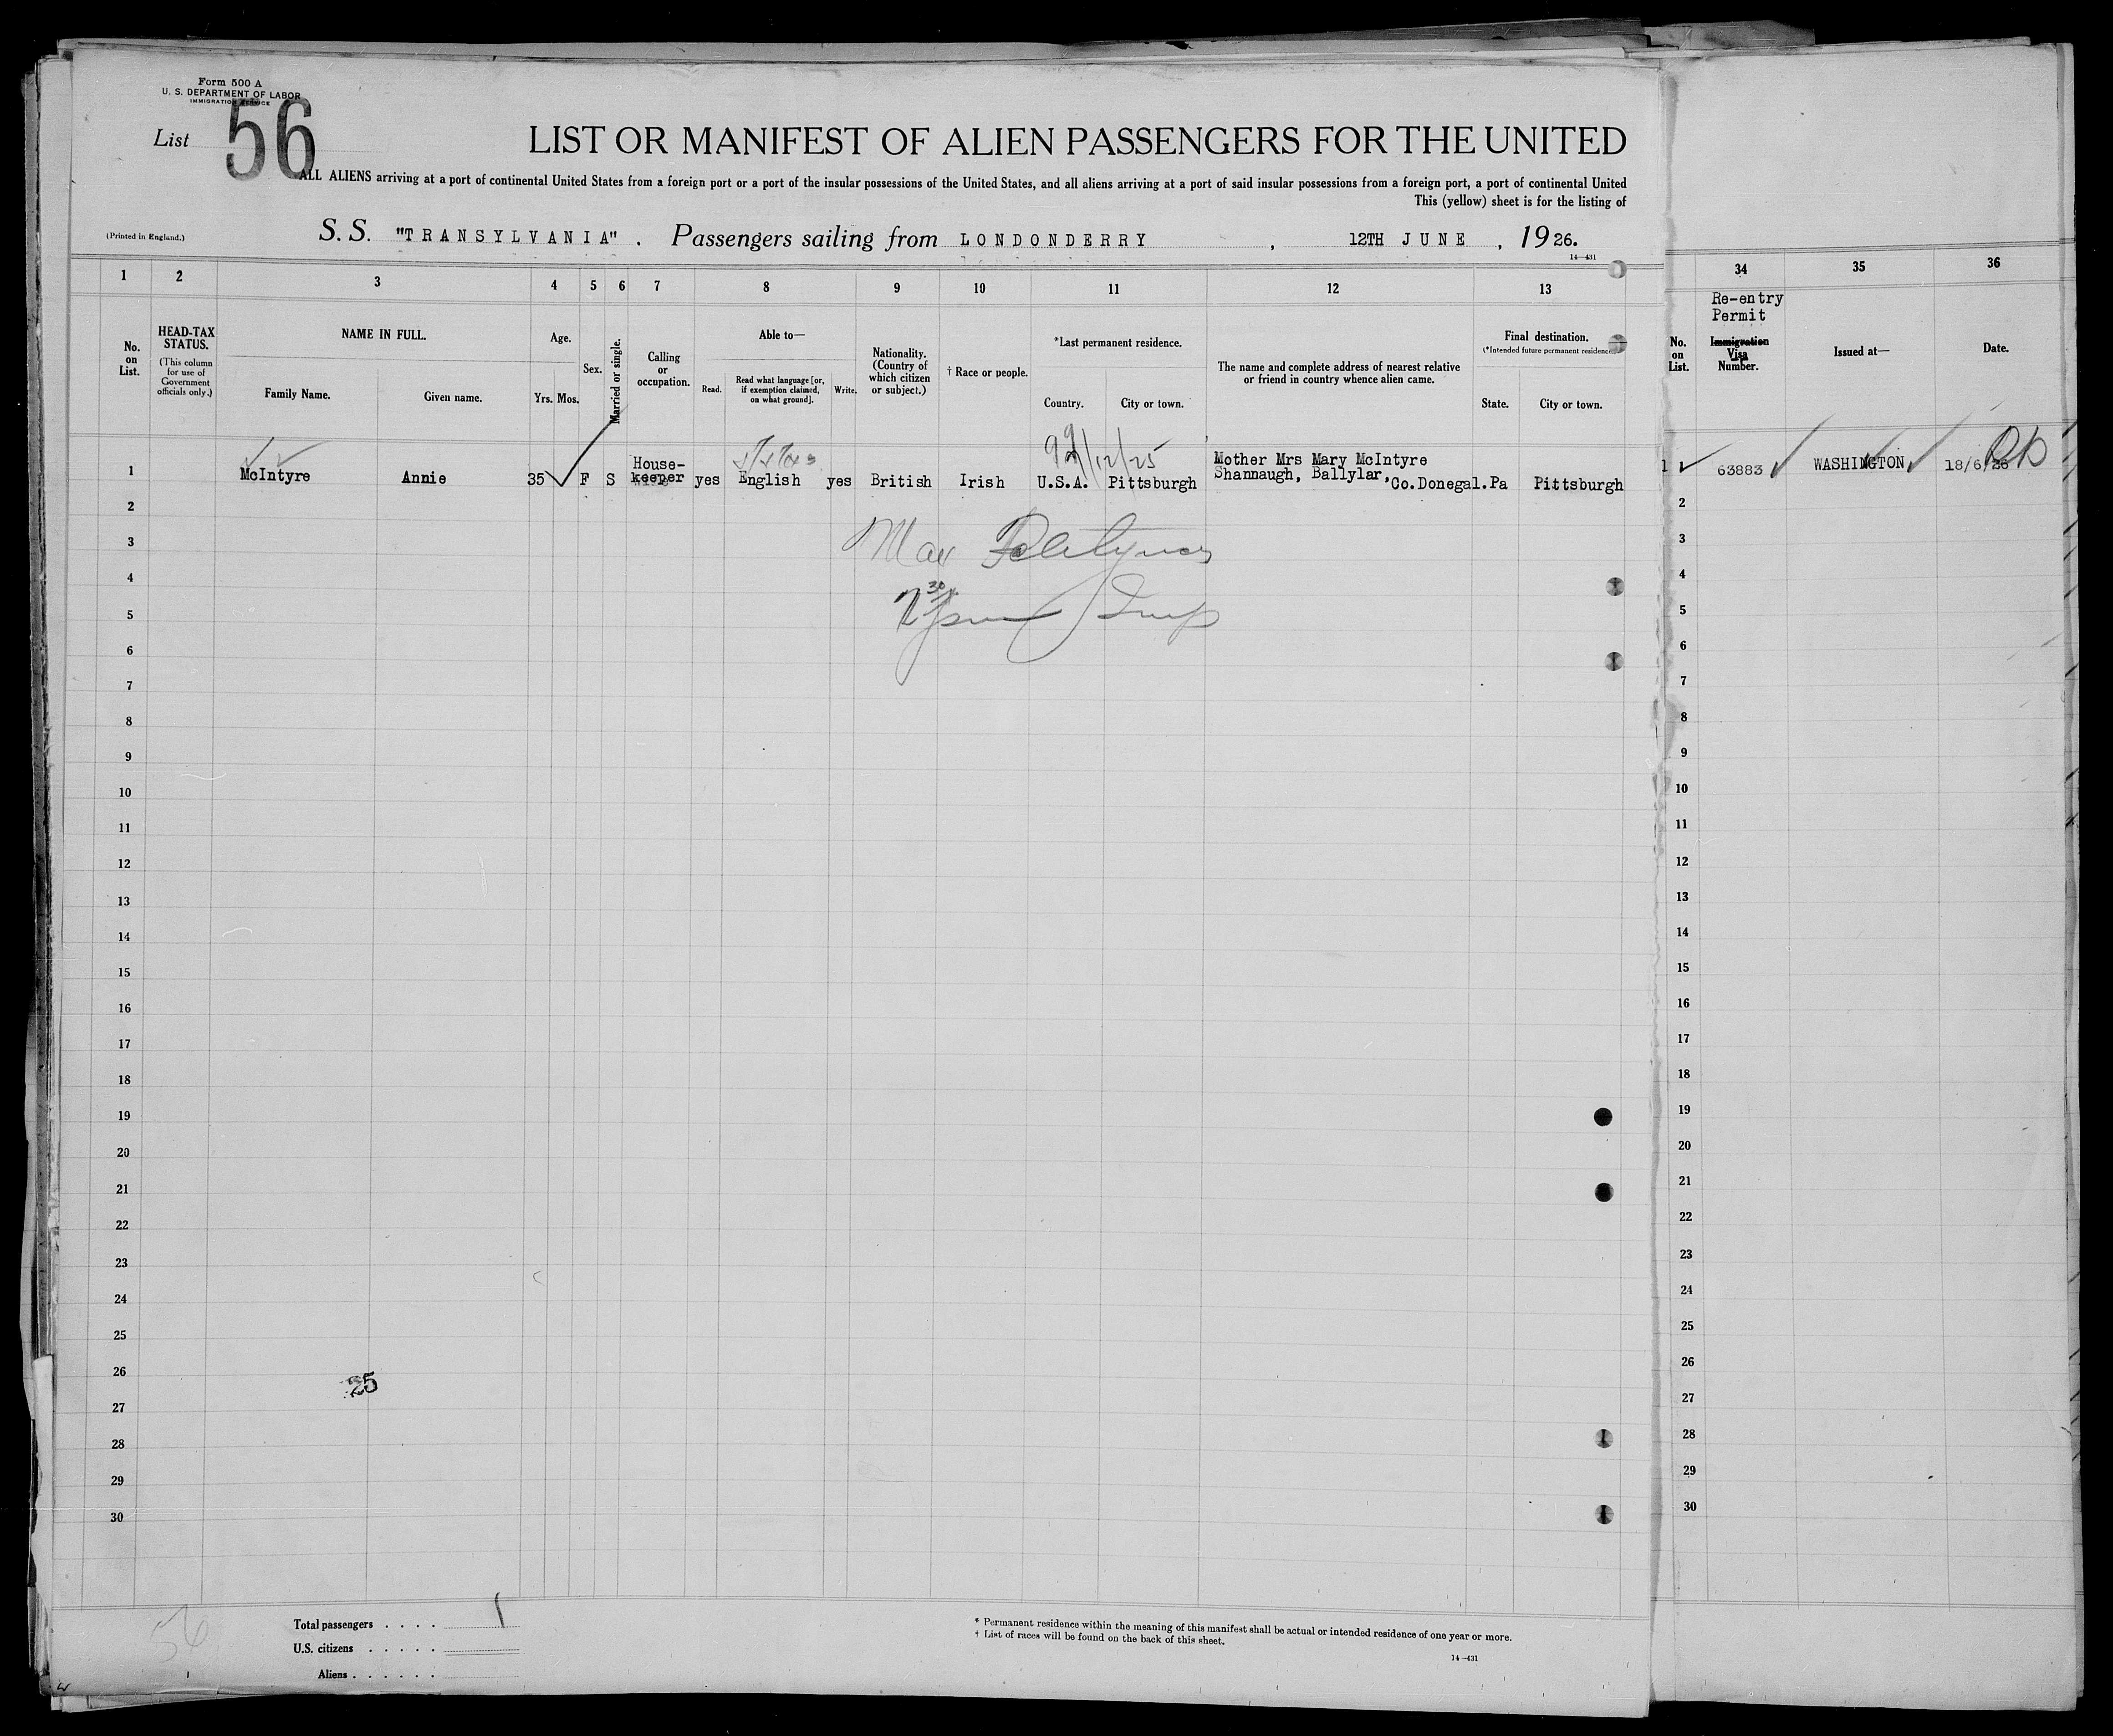 Form 500 A
U. S. DEPARTMENT OF LABOR
IMMIGRATION SERVICE
List 56
LIST OR MANIFEST OF ALIEN PASSENGERS FOR THE UNITED
ALL ALIENS arriving at a port of continental United States from a foreign port or a port of the insular possessions of the United States, and all aliens arriving at a port of said insular possessions from a foreign port, a port of continental United
This (yellow) sheet is for the listing of
(Printed in England.)
S. S. "TRANSYLVANIA" . Passengers sailing from LONDONDERRY , 12TH JUNE , 1926.
14—431
1 2 3 4 5 6 7 8 9 10 11 12 13
No. on List.
HEAD-TAX STATUS.
(This column for use of Government officials only.)
NAME IN FULL.
Family Name. Given name.
Age.
Yrs. Mos.
Sex.
Married or single.
Calling or occupation.
Able to—
Read. Read what language [or, if exemption claimed, on what ground]. Write.
Nationality. (Country of which citizen or subject.)
† Race or people.
*Last permanent residence.
Country. City or town.
The name and complete address of nearest relative or friend in country whence alien came.
Final destination.
(*Intended future permanent residence.)
State. City or town.
34 35 36
No. on List.
Re-entry Permit
Immigration Visa Number.
Issued at—
Date.
12/25
1 McIntyre Annie 35 F S House-keeper yes English yes British Irish U.S.A. Pittsburgh Mother Mrs Mary McIntyre
Shannaugh, Ballylar, Co.Donegal. Pa Pittsburgh
1 63883 WASHINGTON 18/6/26
2
3
4
5
6
7
8
9
10
11
12
13
14
15
16
17
18
19
20
21
22
23
24
25
26
27
28
29
30
2
3
4
5
6
7
8
9
10
11
12
13
14
15
16
17
18
19
20
21
22
23
24
25
26
27
28
29
30
25
56
Total passengers . . . . 1
U.S. citizens . . . . .
Aliens . . . . . .
* Permanent residence within the meaning of this manifest shall be actual or intended residence of one year or more.
† List of races will be found on the back of this sheet.
14—431